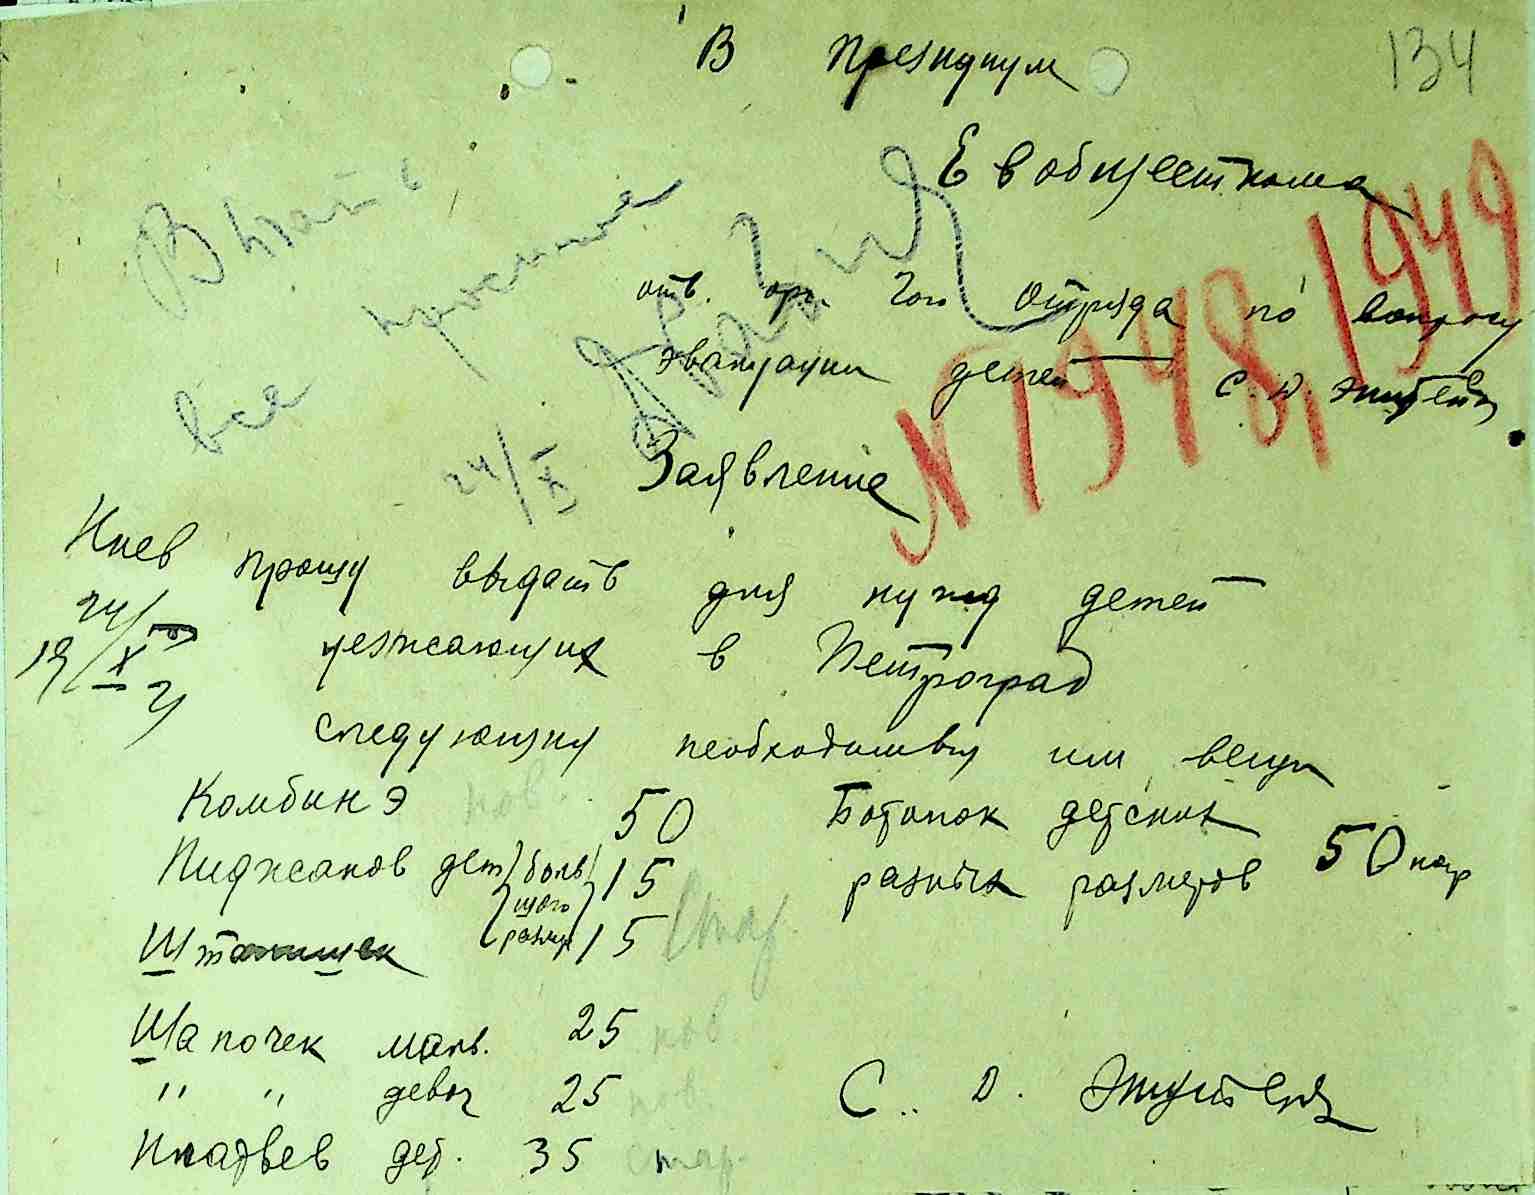 134
В Президиум
Евобщесткома
отв. орг. 2ого отряда по вопросу
эвакуации детей С. Д.
Выдать
все просимое
24/X
N 1948, 1949
Заявление
Киев
24/X 19 21
прошу выдать для нужд детей
уезжающих в Петроград
следующих необходимых им вещи
Комбинэ нов. 50
Пиджаков дет (боль 15
шого
размер) 15 Стар.
Штанишек
Шапочек мальч. 25 нов
" " девоч 25 нов
Платьев дет. 35 стар.
Ботинок детских
разных размеров 50 пар
С. Д.